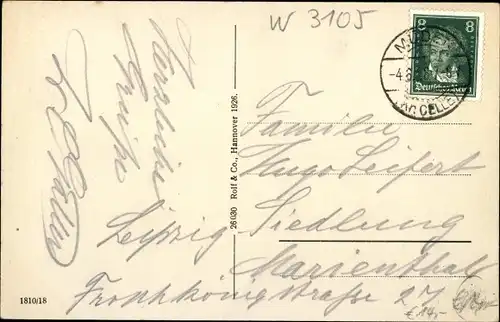 W 3105
8 8
Deutsches Reich
Herzliche
Grüße
26030 Rolf & Co., Hannover 1926.
Familie
Hugo Seifert
Leipzig Siedlung
Marienthal
Froschkönigstraße 27
1810/18
€ 14,-